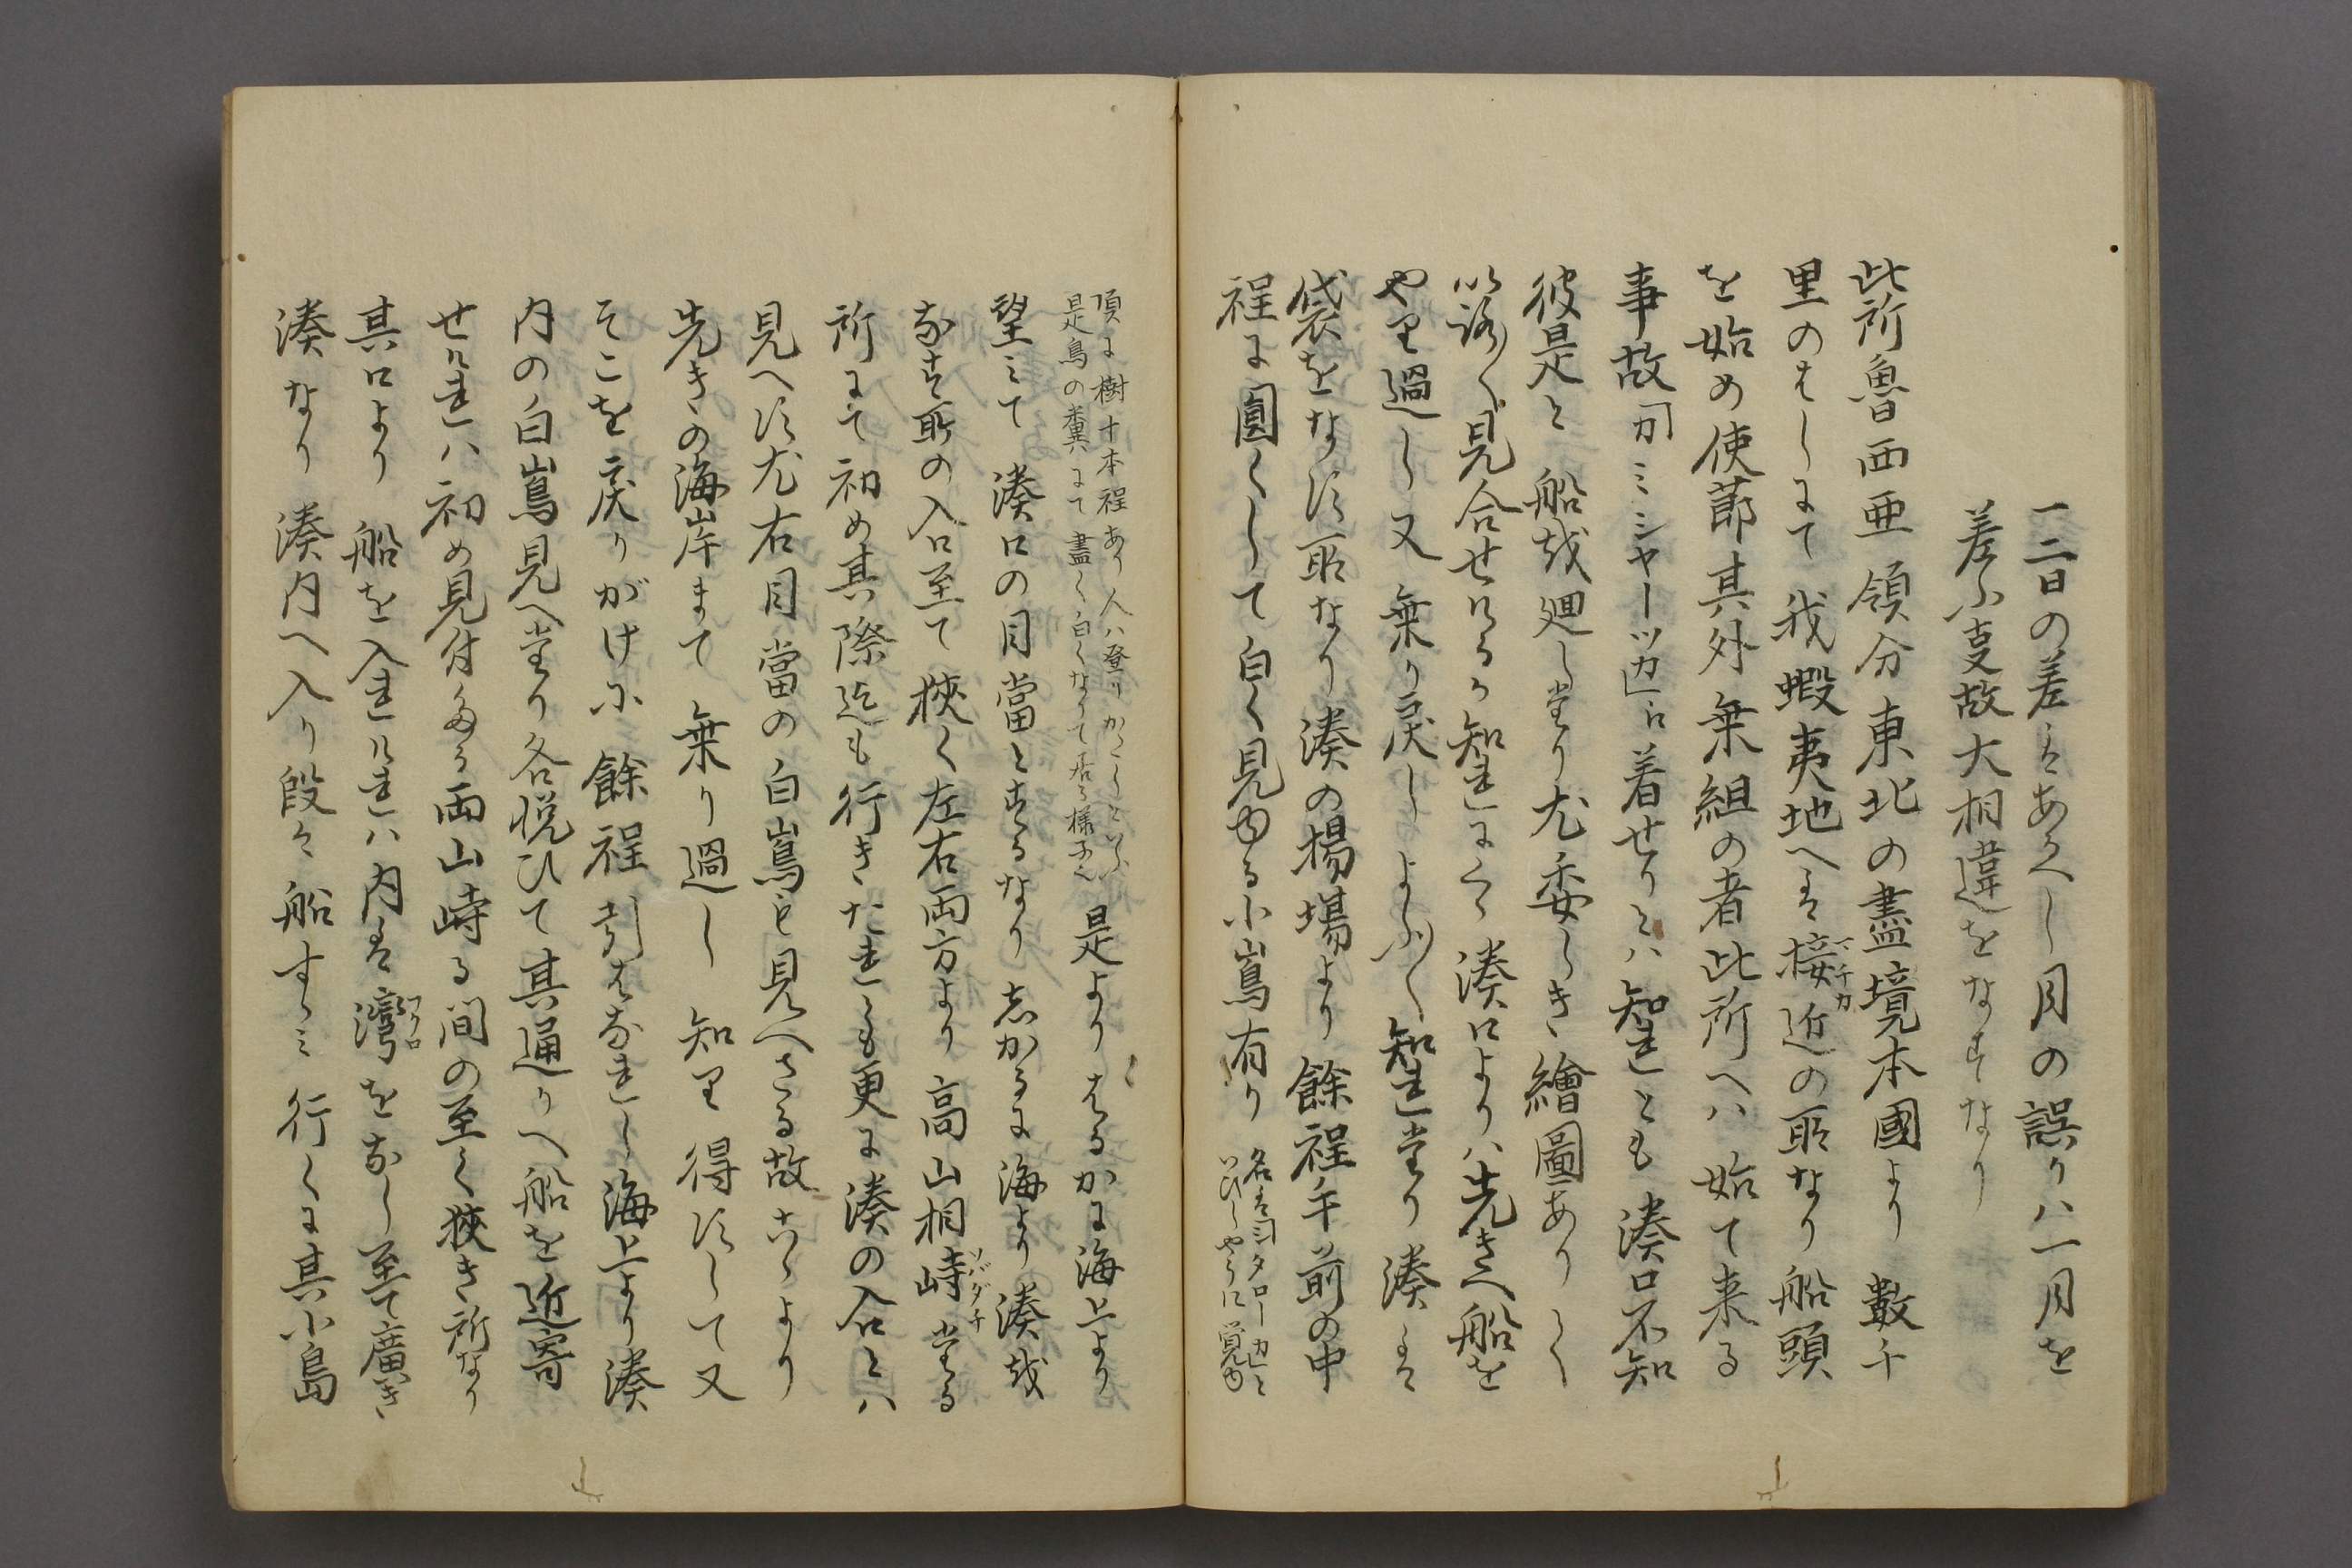 一二日の差はあるへし月の誤りハ一月を
差ふ支故大相違をなすなり
此所魯西亜領分東北の盡境本國より數千
里のはしにて我蝦夷地へは接近の所なり船頭
マチカ
を始め使莭其外乗組の者此所へハ始て来る
事故カミシヤーツカに着せりとハ知れとも湊口不知
彼是と船越廻し堂り尤委しき繪圖ありしく
以諸〱見合せける可知れに〱湊口よりハ先きへ船を
やり過し又乗り戻しよふ〱知れ堂り湊は
袋をなす所なり湊の揚場より餘程手前の中
程に圓くして白く見ゆる小嶌有り
名はシタローカと
いひしやうに覚ゆ
頂に樹十本程あり人ハ登りかたしといふ
是鳥の糞にて盡く白くなりて居る様子也
是よりはるかに海上より
望ミて湊口の目當とするなり志かるに海より湊越
なす所の入口至て狹く左右両方より高山相峙堂る
ソバダチ
所にて初め其際迄も行きたれとも更に湊の入口とハ
見へす尤右目當の白嶌も見へさる故古ゝより
先きの海岸まて乗り過し知り得すして又
そこを戻りがけに餘程引はなれし海上より湊
内の白嶌見へ堂り各悦ひて其通りへ船を近寄
せけれハ初め見付たる両山峙る間の至く狹き所なり
其口より船を入れけれハ内は灣をなし至て廣き
フクロ
湊なり湊内へ入り段々船すゝミ行くに其小島